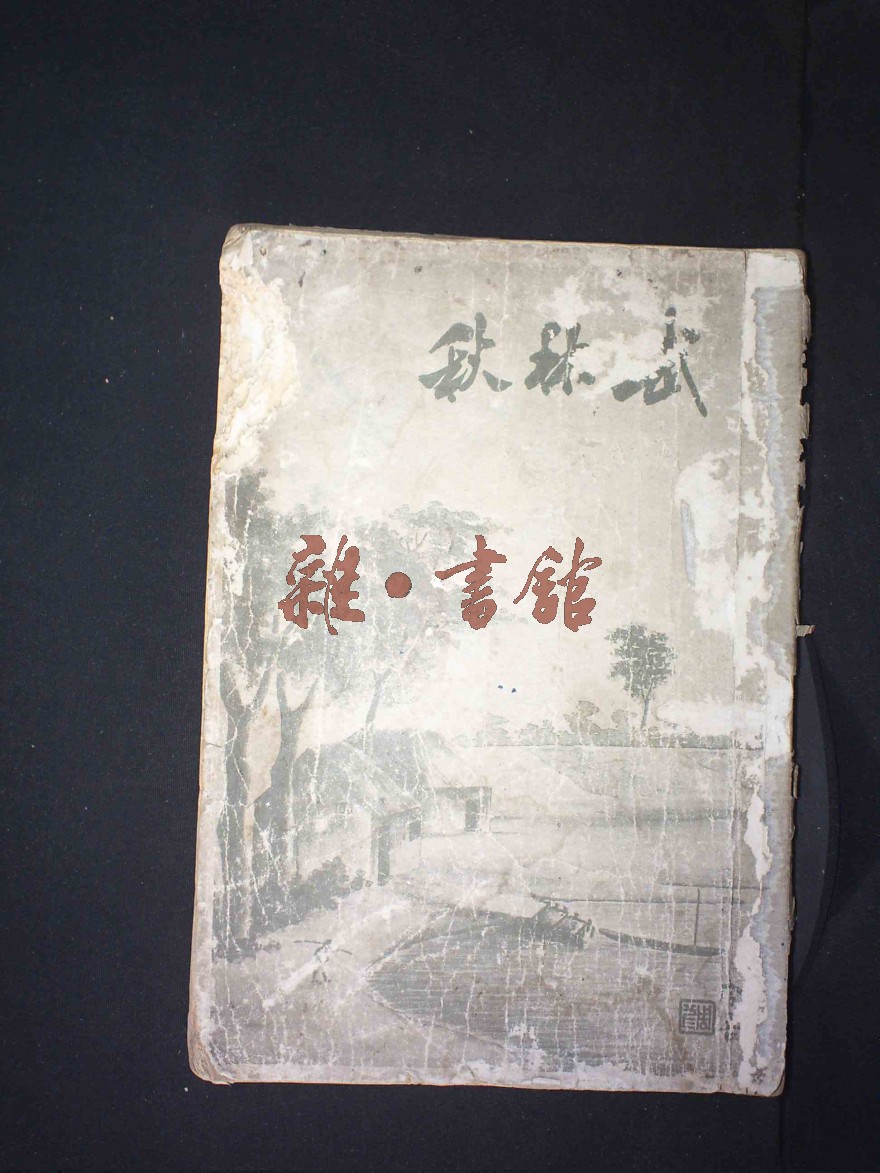 武林秋
雜•書館